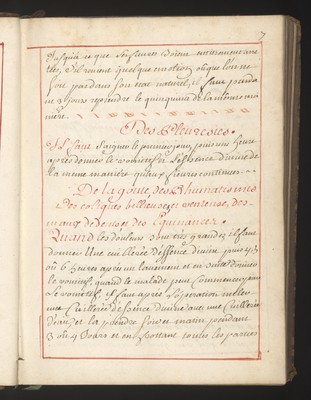 7
Jusqu'a ce que
les fievres soient entierement arre
tées, s'il revient quelque emotion ou que l'on ne
soit pas dans son etat naturel, il faut penda
nt jours reprendre le quinquina de la mème ma
niere.
Des Pleuresies.
Il faut Saigner le premier jour, puis une heure
apres donner le vomitif de l'Essence divine de
la meme maniere qu'aux fievres continues.
De la goute, des Rhumatismes
Des coliques bilieuses et venteuse, des
maux de des Esquinancie.
Quand les douleurs sont tres grandes il faut
donner une cuillerée d'Essence divine puis 4, 5
ou 6 heures apres un lavement et en suite donner
le vomitif, quand le malade peut commencer par
le vomitif, il faut apres l'operation meller
une Cuillerée d'essence divine avec une Cuillerée
d'eau et la prendre soir et matin pendant
3 ou 4 Jours et en frottant toutes les parties